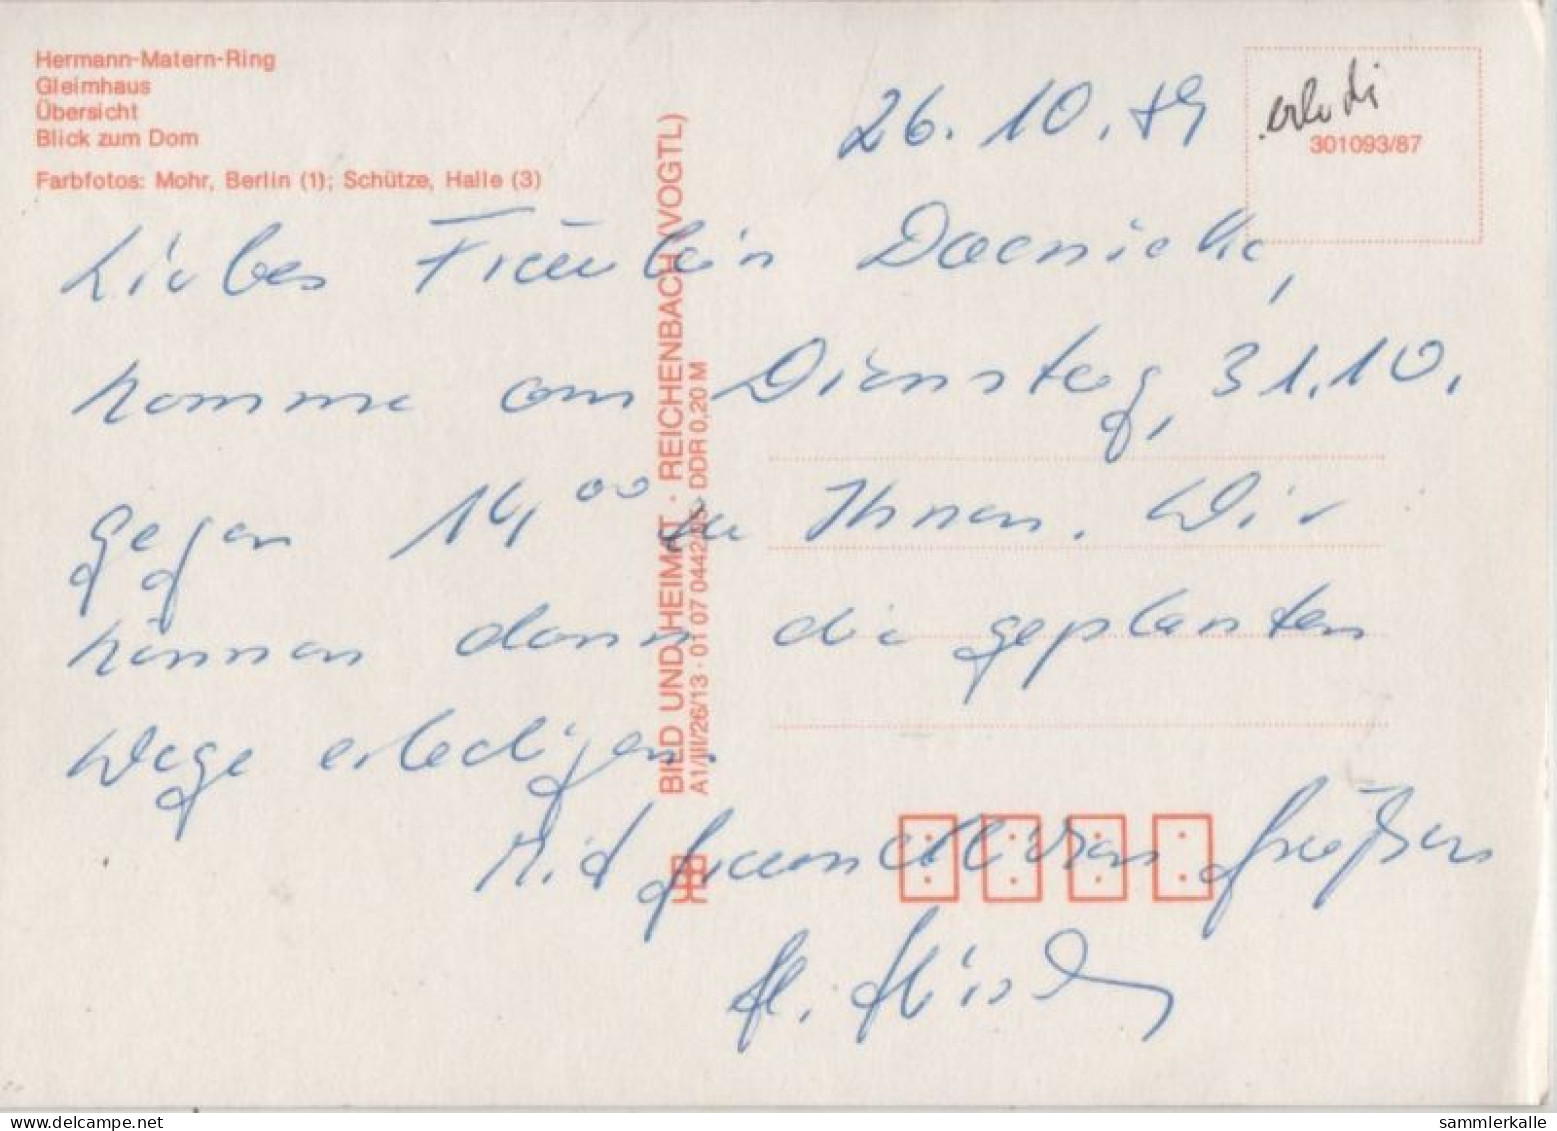 Hermann-Matern-Ring
Gleimhaus
Übersicht
Blick zum Dom
Farbfotos: Mohr, Berlin (1); Schütze, Halle (3)
26. 10. 89
301093/87
Liebes Fräulein Daenicke,
komme am Dienstag, 31.10.
gegen 14,00 zu Ihnen. Wir
können dann die geplanten
Wege erledigen
Mit freundlichen Grüßen
H.
BILD UND HEIMAT · REICHENBACH (VOGTL)
A1/III/26/13 · 01 07 0442/05 · DDR 0,20 M
sammlerkalle